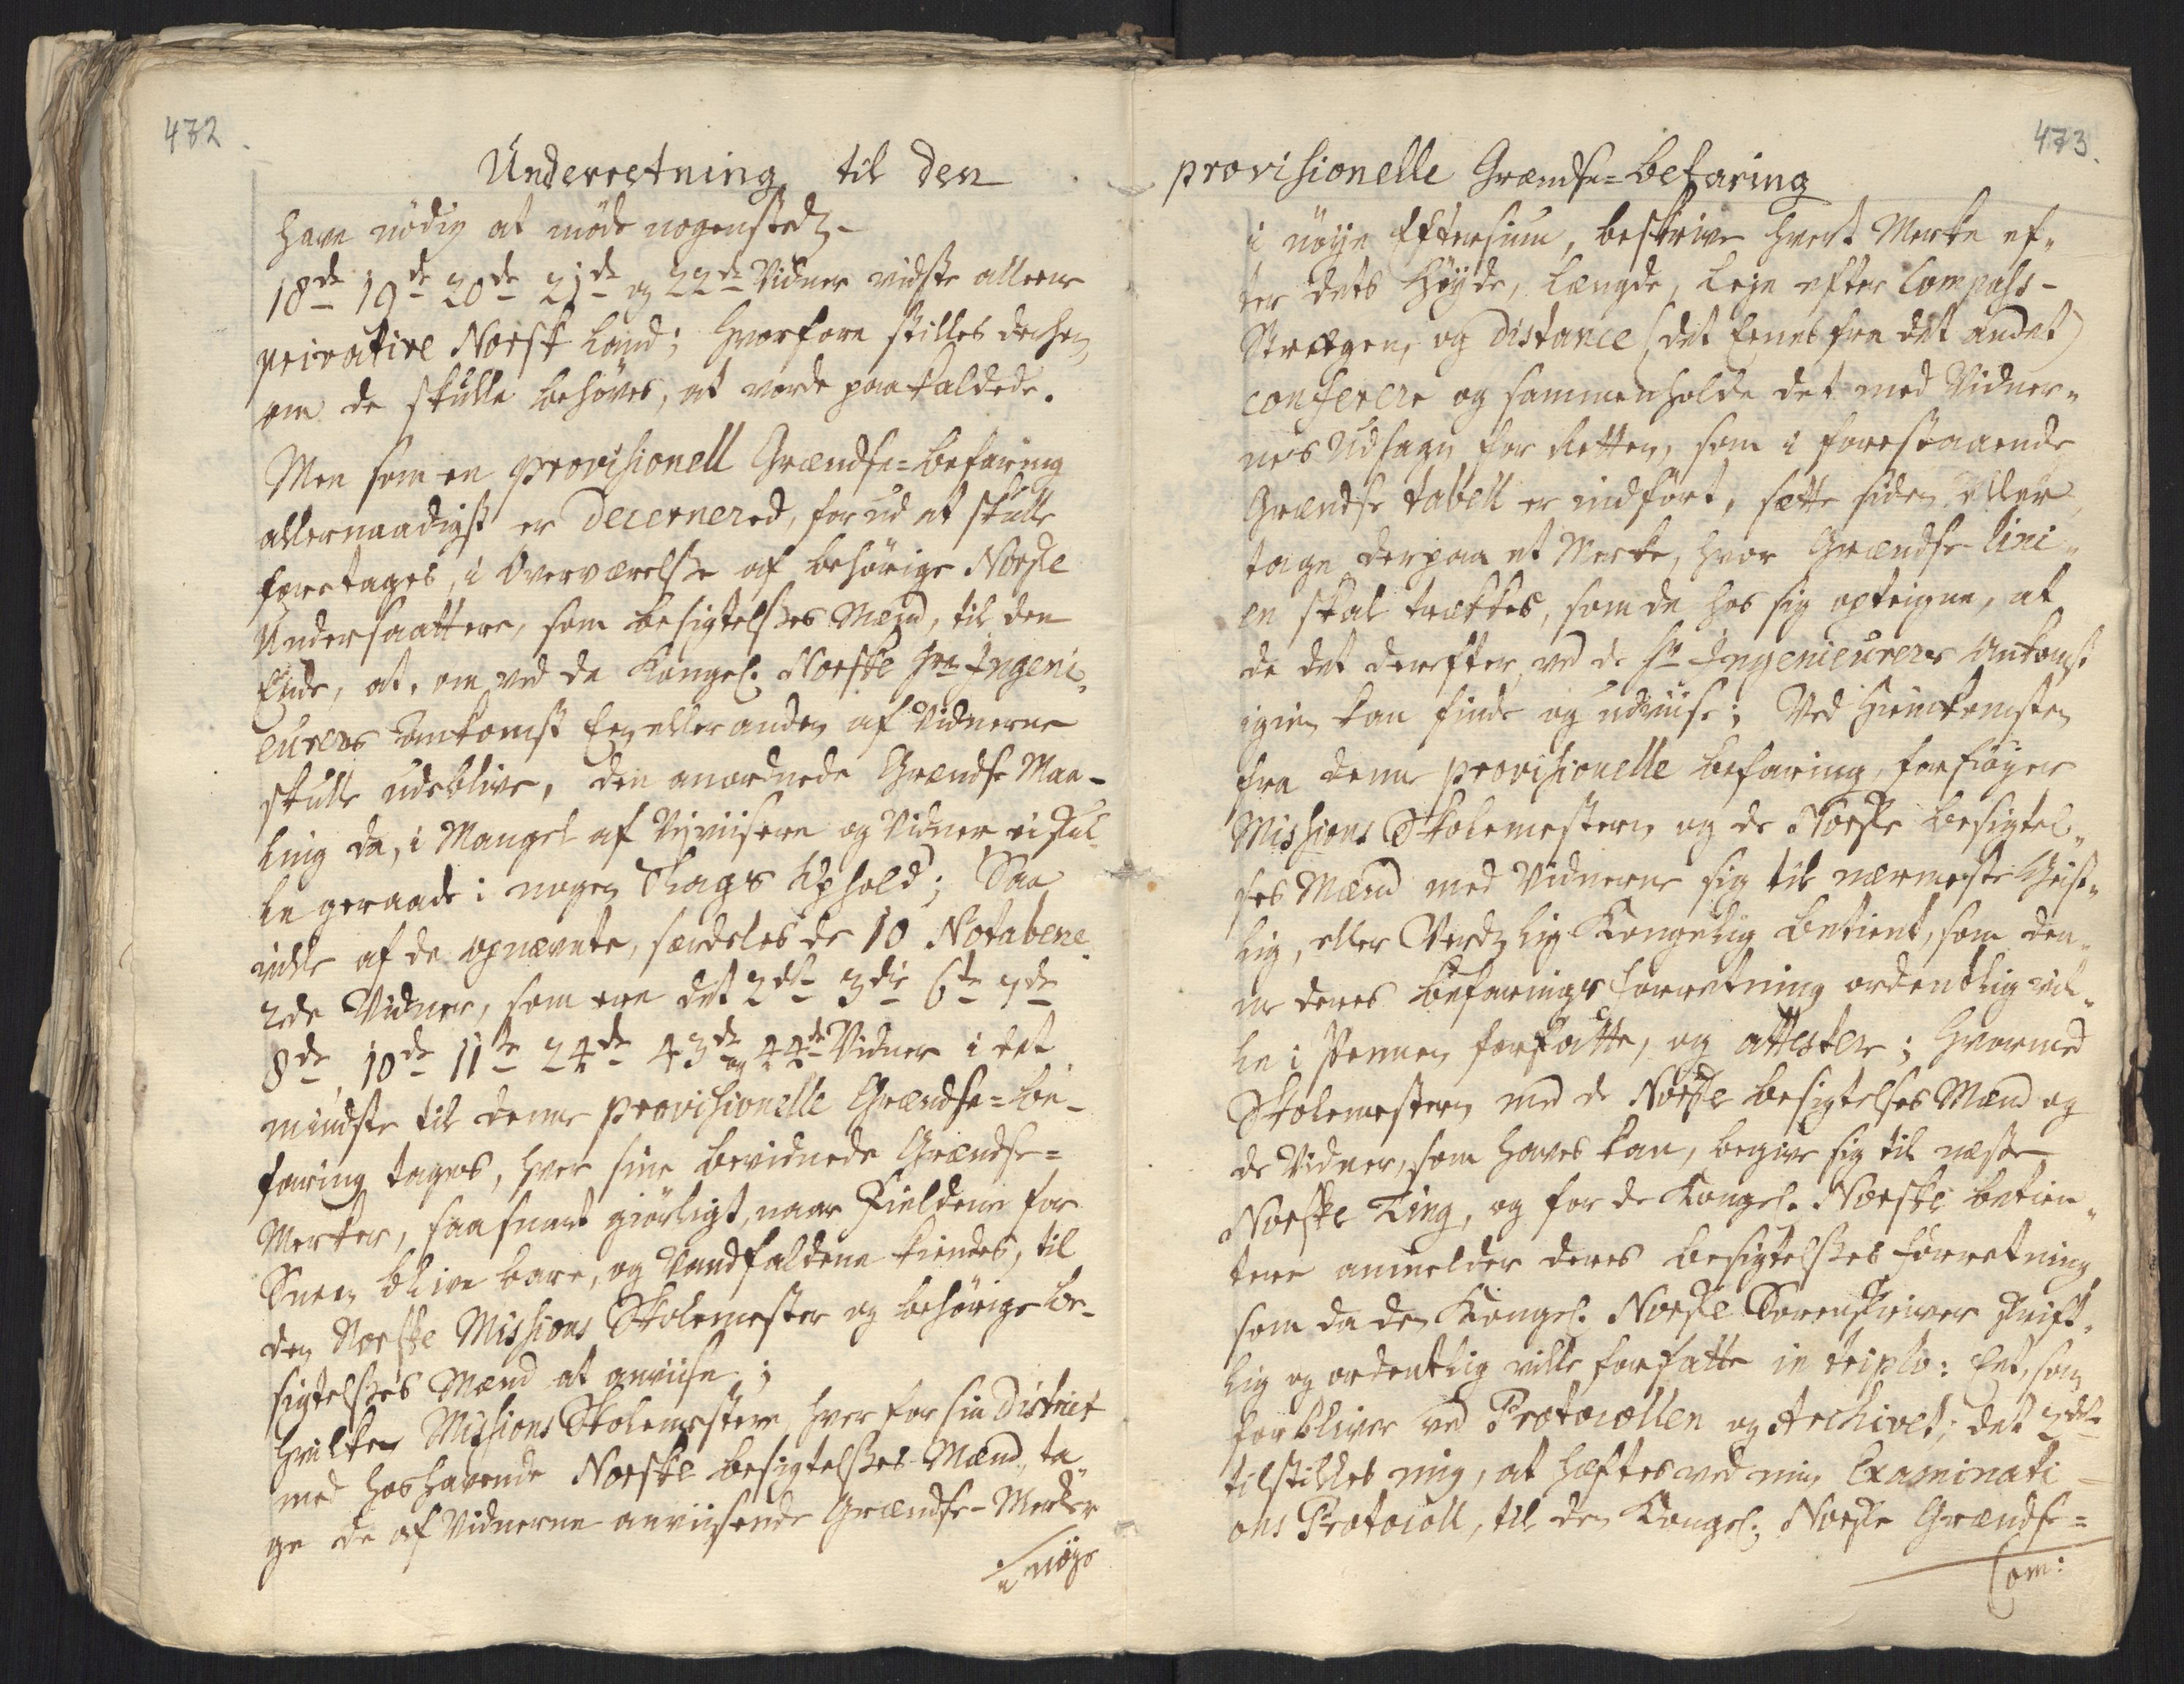 472
Underretning til den
have nödig at möde nogenstedz.
18de 19de 20de 21de og 22de Vidner vidste alleene
privative Norsk Land; hvorfore stilles derhen
om de skulle behöves, at vorde paakaldede.
Men som en provisionell Grændse=befaring
allernaadigst er Decernered, forud at skulle
foretages, i Overværelsse af behörige Norske
Undersaattere, som besigtelsses Mænd, til den
Ende, at, om ved de Kongel: Norske Hrr Ingeni„
eurers Ankomst Een eller anden af Vidnerne
skulle udeblive, den anordnede Grændse Maa-
ling da, i Mangel af Vejviisere og Vidner ei skul
le geraade i nogen Slags Ophold; Saa
ville af de opnævnte, særdeles de 10 Notabene
rede Vidner, som ere det 2det 3die 6te 7de
8de 10de 11te 24de 43de og 44de Vidner i det
mindste til denne provisionelle Grændse=be-
faring tages, hver sine bevidnede Grændse=
Merker, saasnart giörligt, naar Fieldene for
Sneen blive bare, og Vandfaldene kiendes, til
den Norske Missions Skolemester og behörige be-
sigtelsses Mænd at anviise;
Hvilken Missions Skolemestere, hver for sin District
med hoshavende Norske besigtelsses-Mænd, ta
ge de af Vidnerne anviisende Grændse-Merker
i nöye
473.
provisionelle Grændse=befaring
i nöye Eftersiun, beskrive hvert Merke ef„
ter dets Höyde, Længde, Leje efter Compass-
Strægen, og Distance (det Eenes fra det andet)
conferere og sammenholde det med Vidner„
nes Udsagn for Retten, som i forestaaende
Grændse tabell er indfört, sætte siden eller
tage derpaa et Merke, hvor Grændse Lini„
en skal trækkes, som de hos sig opteigne, at
de det derefter, ved de Hr Ingenieurers Ankomst
igien kan finde og udviise; Ved Hiemkomsten
fra denne provisionelle befaring, forföyer
Missions Skolemesteren og de Norske besigtel„
ses Mænd med Vidnerne sig til nærmeste Geist„
lig, eller Verdzlig Kongelig betient, som den„
ne deres befarings Forretning ordentlig vil„
le i Pennen forfatte, og attestere; Hvormed
Skolemesteren med de Norske besigtelses Mænd og
de Vidner, som haves kan, begive sig til næste
Norske Ting, og for de Kongel. Norske betien„
tere anmelder deres besigtelsses Forretning,
som da den Kongel. Norske Sorenskriver skrift„
lig og ordentlig ville forfatte in triplo: Eet, som
forbliver ved Protocollen og Archivet; det 2det
tilstilles mig, at hæftes ved min Examinati=
ons Protocoll, til den Kongel. Norske Grændse=
Com: